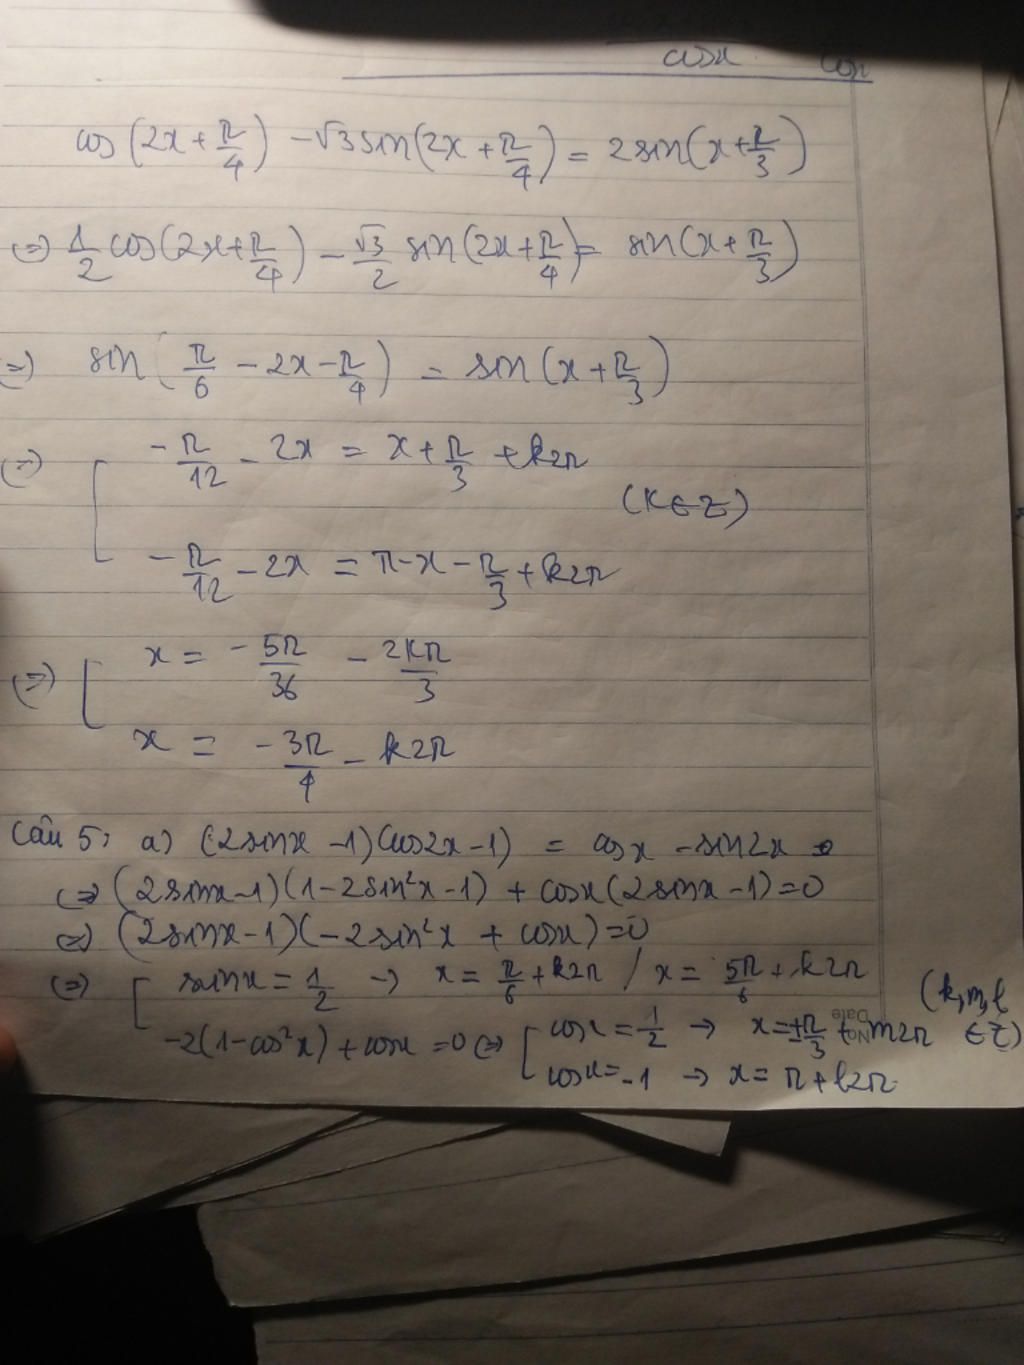 cosx cosx
cos(2x + π/4) - √3 sin(2x + π/4) = 2 sin(x + π/3)
(=) 1/2 cos(2x + π/4) - √3/2 sin(2x + π/4) = sin(x + π/3)
(=) sin(π/6 - 2x - π/4) = sin(x + π/3)
(=) [ -π/12 - 2x = x + π/3 + k2π
(k ∈ Z)
-π/12 - 2x = π - x - π/3 + k2π
(=) [ x = -5π/36 - 2kπ/3
x = -3π/4 - k2π
Câu 5: a) (2sinx - 1)(cos2x - 1) = cosx - sin2x
(=) (2sinx - 1)(1 - 2sin²x - 1) + cosx(2sinx - 1) = 0
(=) (2sinx - 1)(-2sin²x + cosx) = 0
(=) [ sinx = 1/2 → x = π/6 + k2π / x = 5π/6 + k2π (k, m, l
-2(1 - cos²x) + cosx = 0 (=) [ cosx = 1/2 → x = ±π/3 + m2π ∈ Z)
cosx = -1 → x = π + l2π
No.
Date